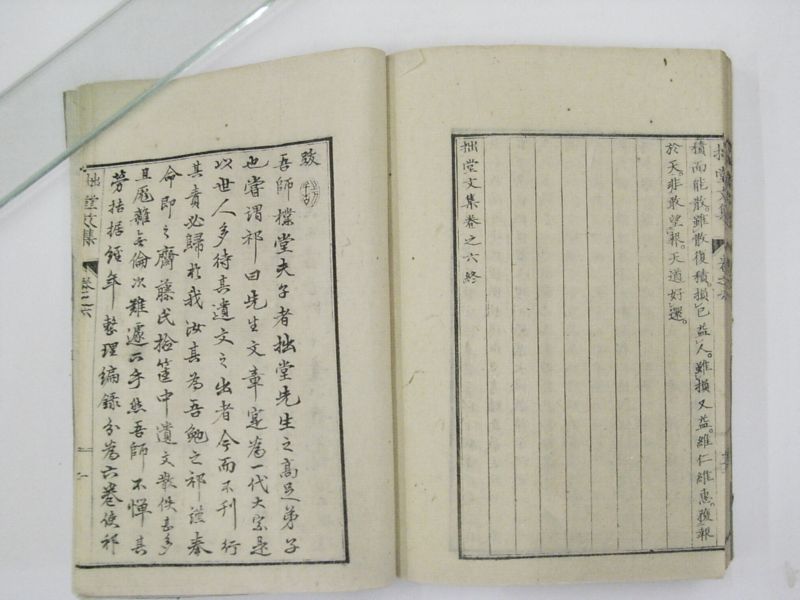 積而能散。雖散復積。損已益人。雖損又益。維仁維惠。獲報
於天。非敢望報。天道好還。
拙堂文集卷之六終
跋
吾師櫟堂夫子者拙堂先生之高足弟子
也嘗謂祁曰先生文章寔為一代大宗是
以世人多待其遺文之出者今而不刊行
其責必歸於我汝其為吾勉之祁謹奉
命即之齋藤氏拾篋中遺文散佚甚多
且厖雜無倫次難遽下手然吾師不憚其
勞拮据經年整理編錄分為六卷使祁
拙堂文集
卷之六